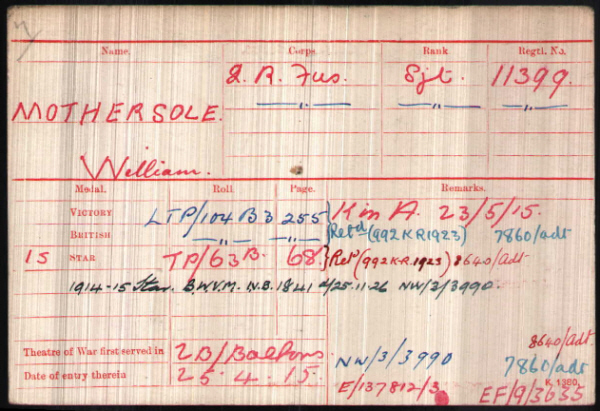 Name. Corps. Rank Regtl. No.
L. R. Fus. Sjt. 11399.
MOTHERSOLE. —"— —"— —"—
William.
Medal. Roll Page. Remarks.
VICTORY LTP/104 B3 255 K in A. 23/5/15.
BRITISH —"— —"— Retd (992 KR 1923) 7860/adt
15 STAR TP/63B. 68 Retd (992 K.R. 1923) 8640/adt
1914-15 Star. B.W.V.M. N.B. 1841 d/25.11.26 NW/3/3990.
8640/adt.
Theatre of War first served in 2B/Balkans NW/3/3990 7860/adt
Date of entry therein 25.4.15. E/137812/3 EF/9/3635
K. 1380.